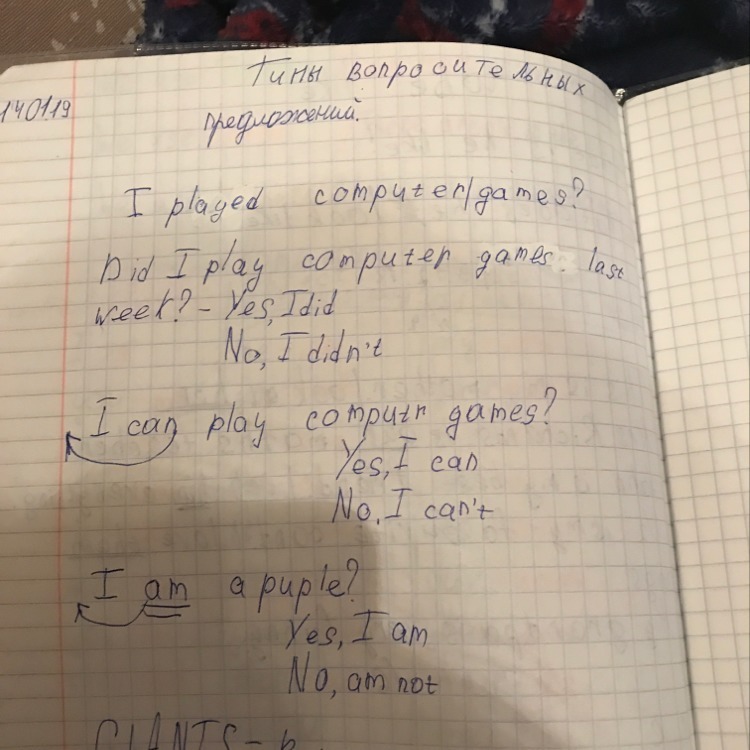 Типы вопросительных
14.01.19
предложений.
I played computer/games?
Did I play computer games last
week? - Yes, I did
No, I didn't
I can play computr games?
Yes, I can
No, I can't
I am a puple?
Yes, I am
No, am not
GIANTS -